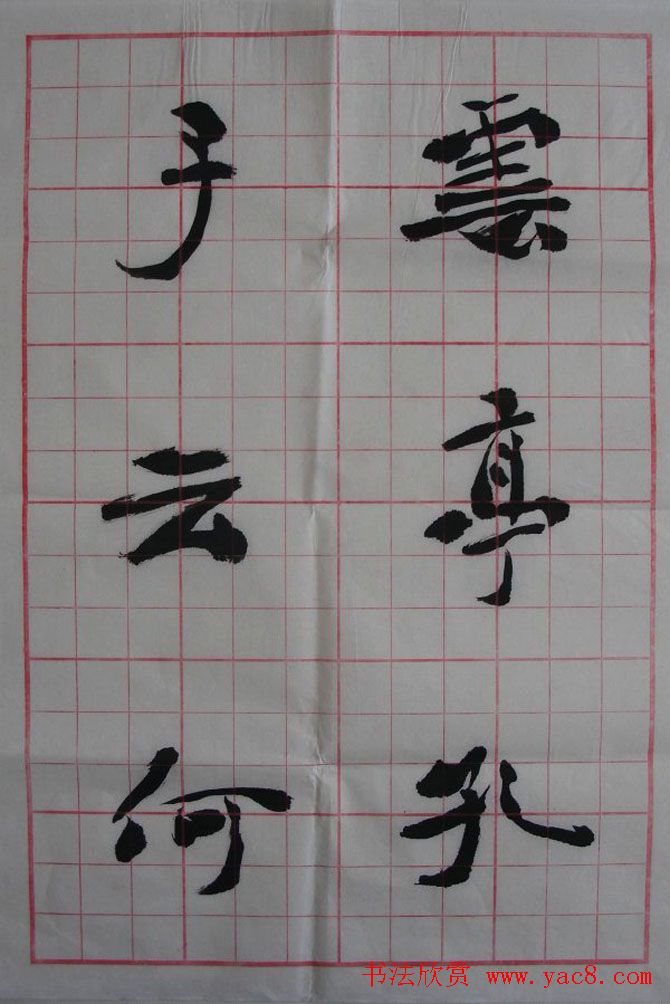 雲亭孔
子云何
书法欣赏 www.yac8.com